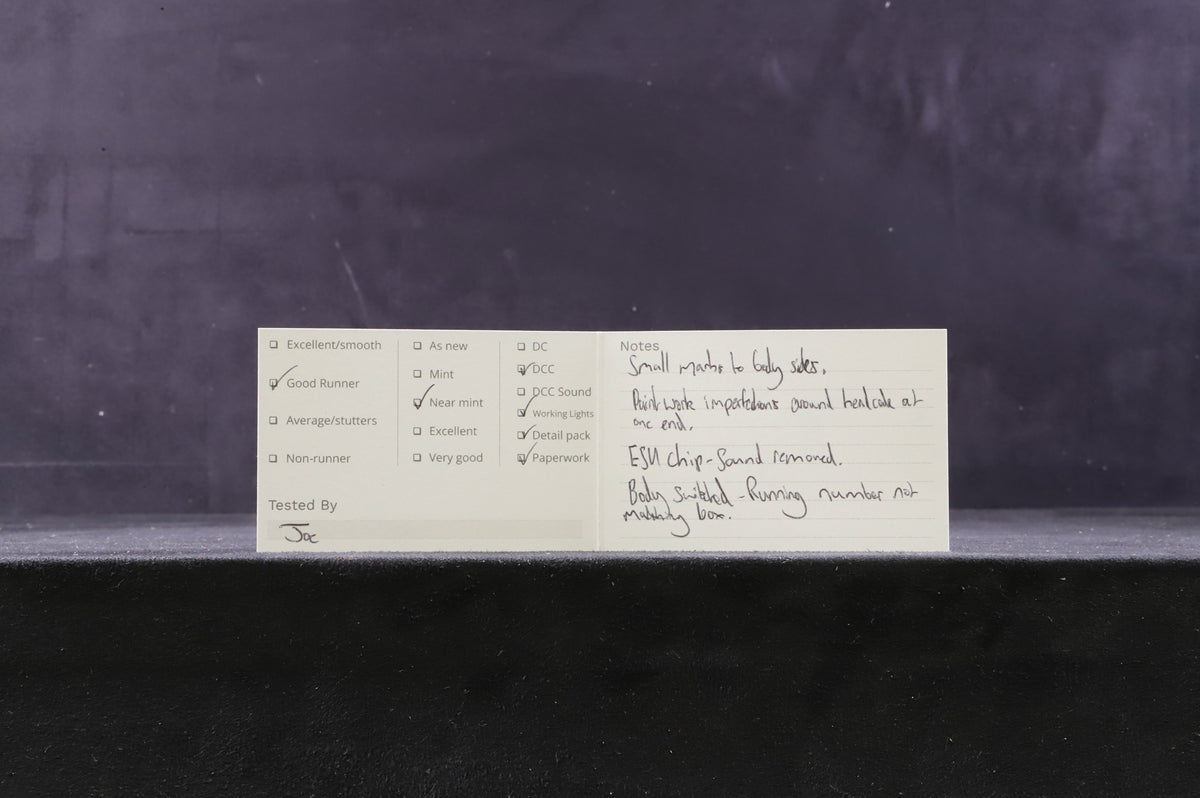 Excellent/smooth
Good Runner
Average/stutters
Non-runner
As new
Mint
Near mint
Excellent
Very good
DC
DCC
DCC Sound
Working Lights
Detail pack
Paperwork
Tested By
Joe
Notes
Small marks to body sides.
Paintwork imperfections around headcode at
one end.
ESU chip - Sound removed.
Body switched - Running number not
matching box.